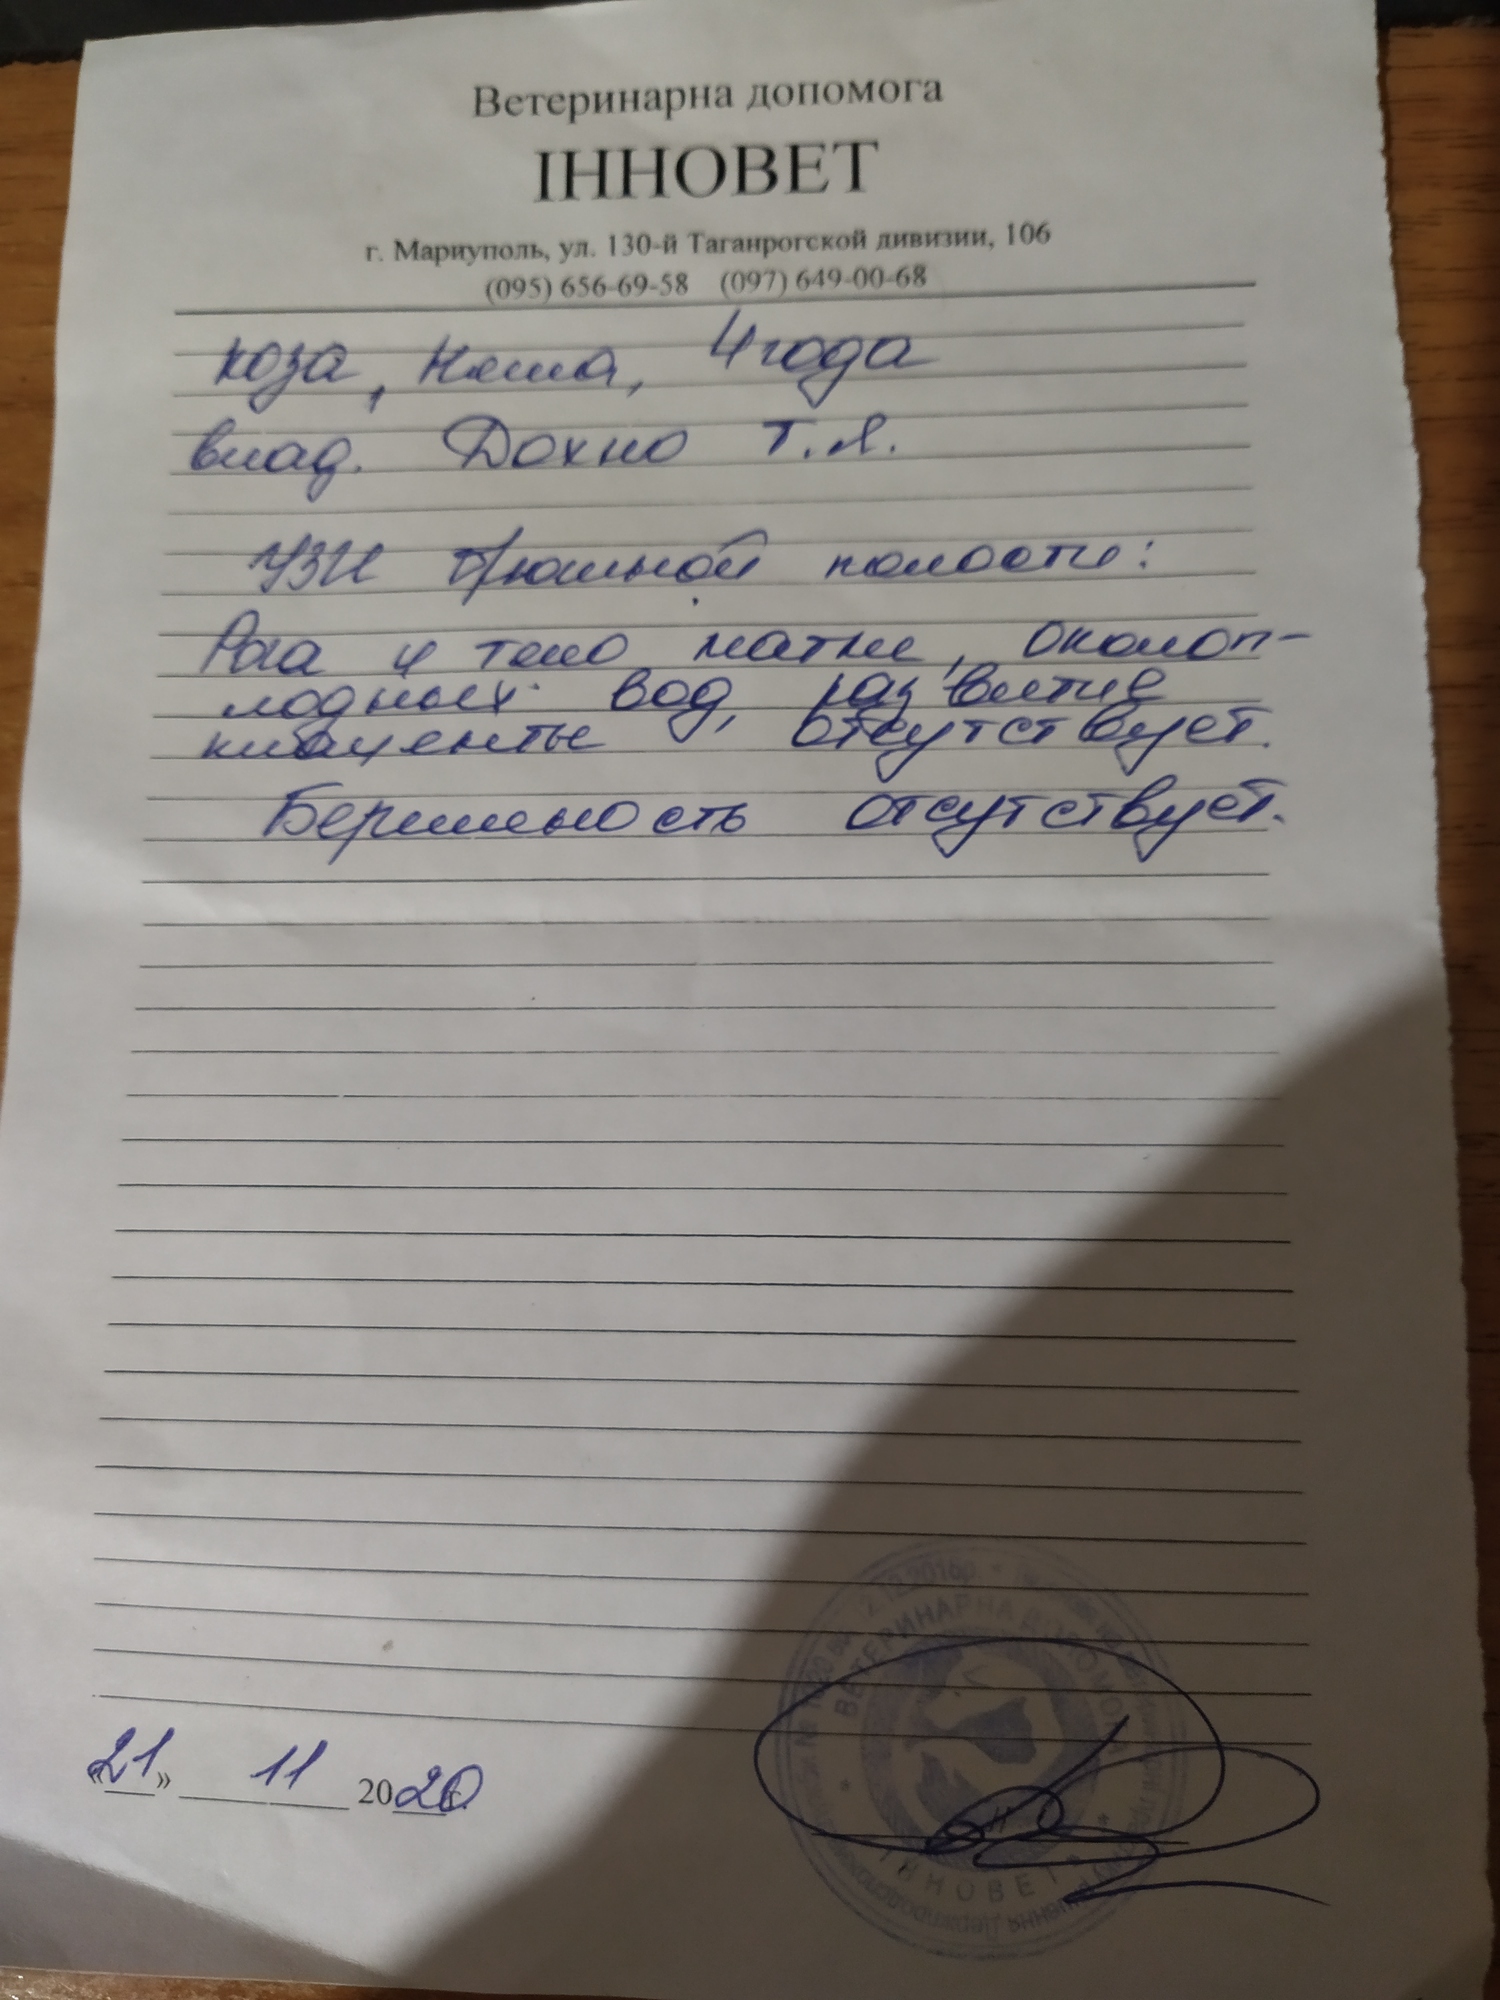 Ветеринарна допомога
ІННОВЕТ
г. Мариуполь, ул. 130-й Таганрогской дивизии, 106
(095) 656-69-58 (097) 649-00-68
коза, Кеша, 4 года
влад. Дохно Т.Я.
УЗИ брюшной полости:
Рога и тело матки, околоп-
лодных вод, развитие
плаценты отсутствует.
Беременность отсутствует.
«21» 11 2020 г.
ВЕТЕРИНАРНА ДОПОМОГА
ІННОВЕТ